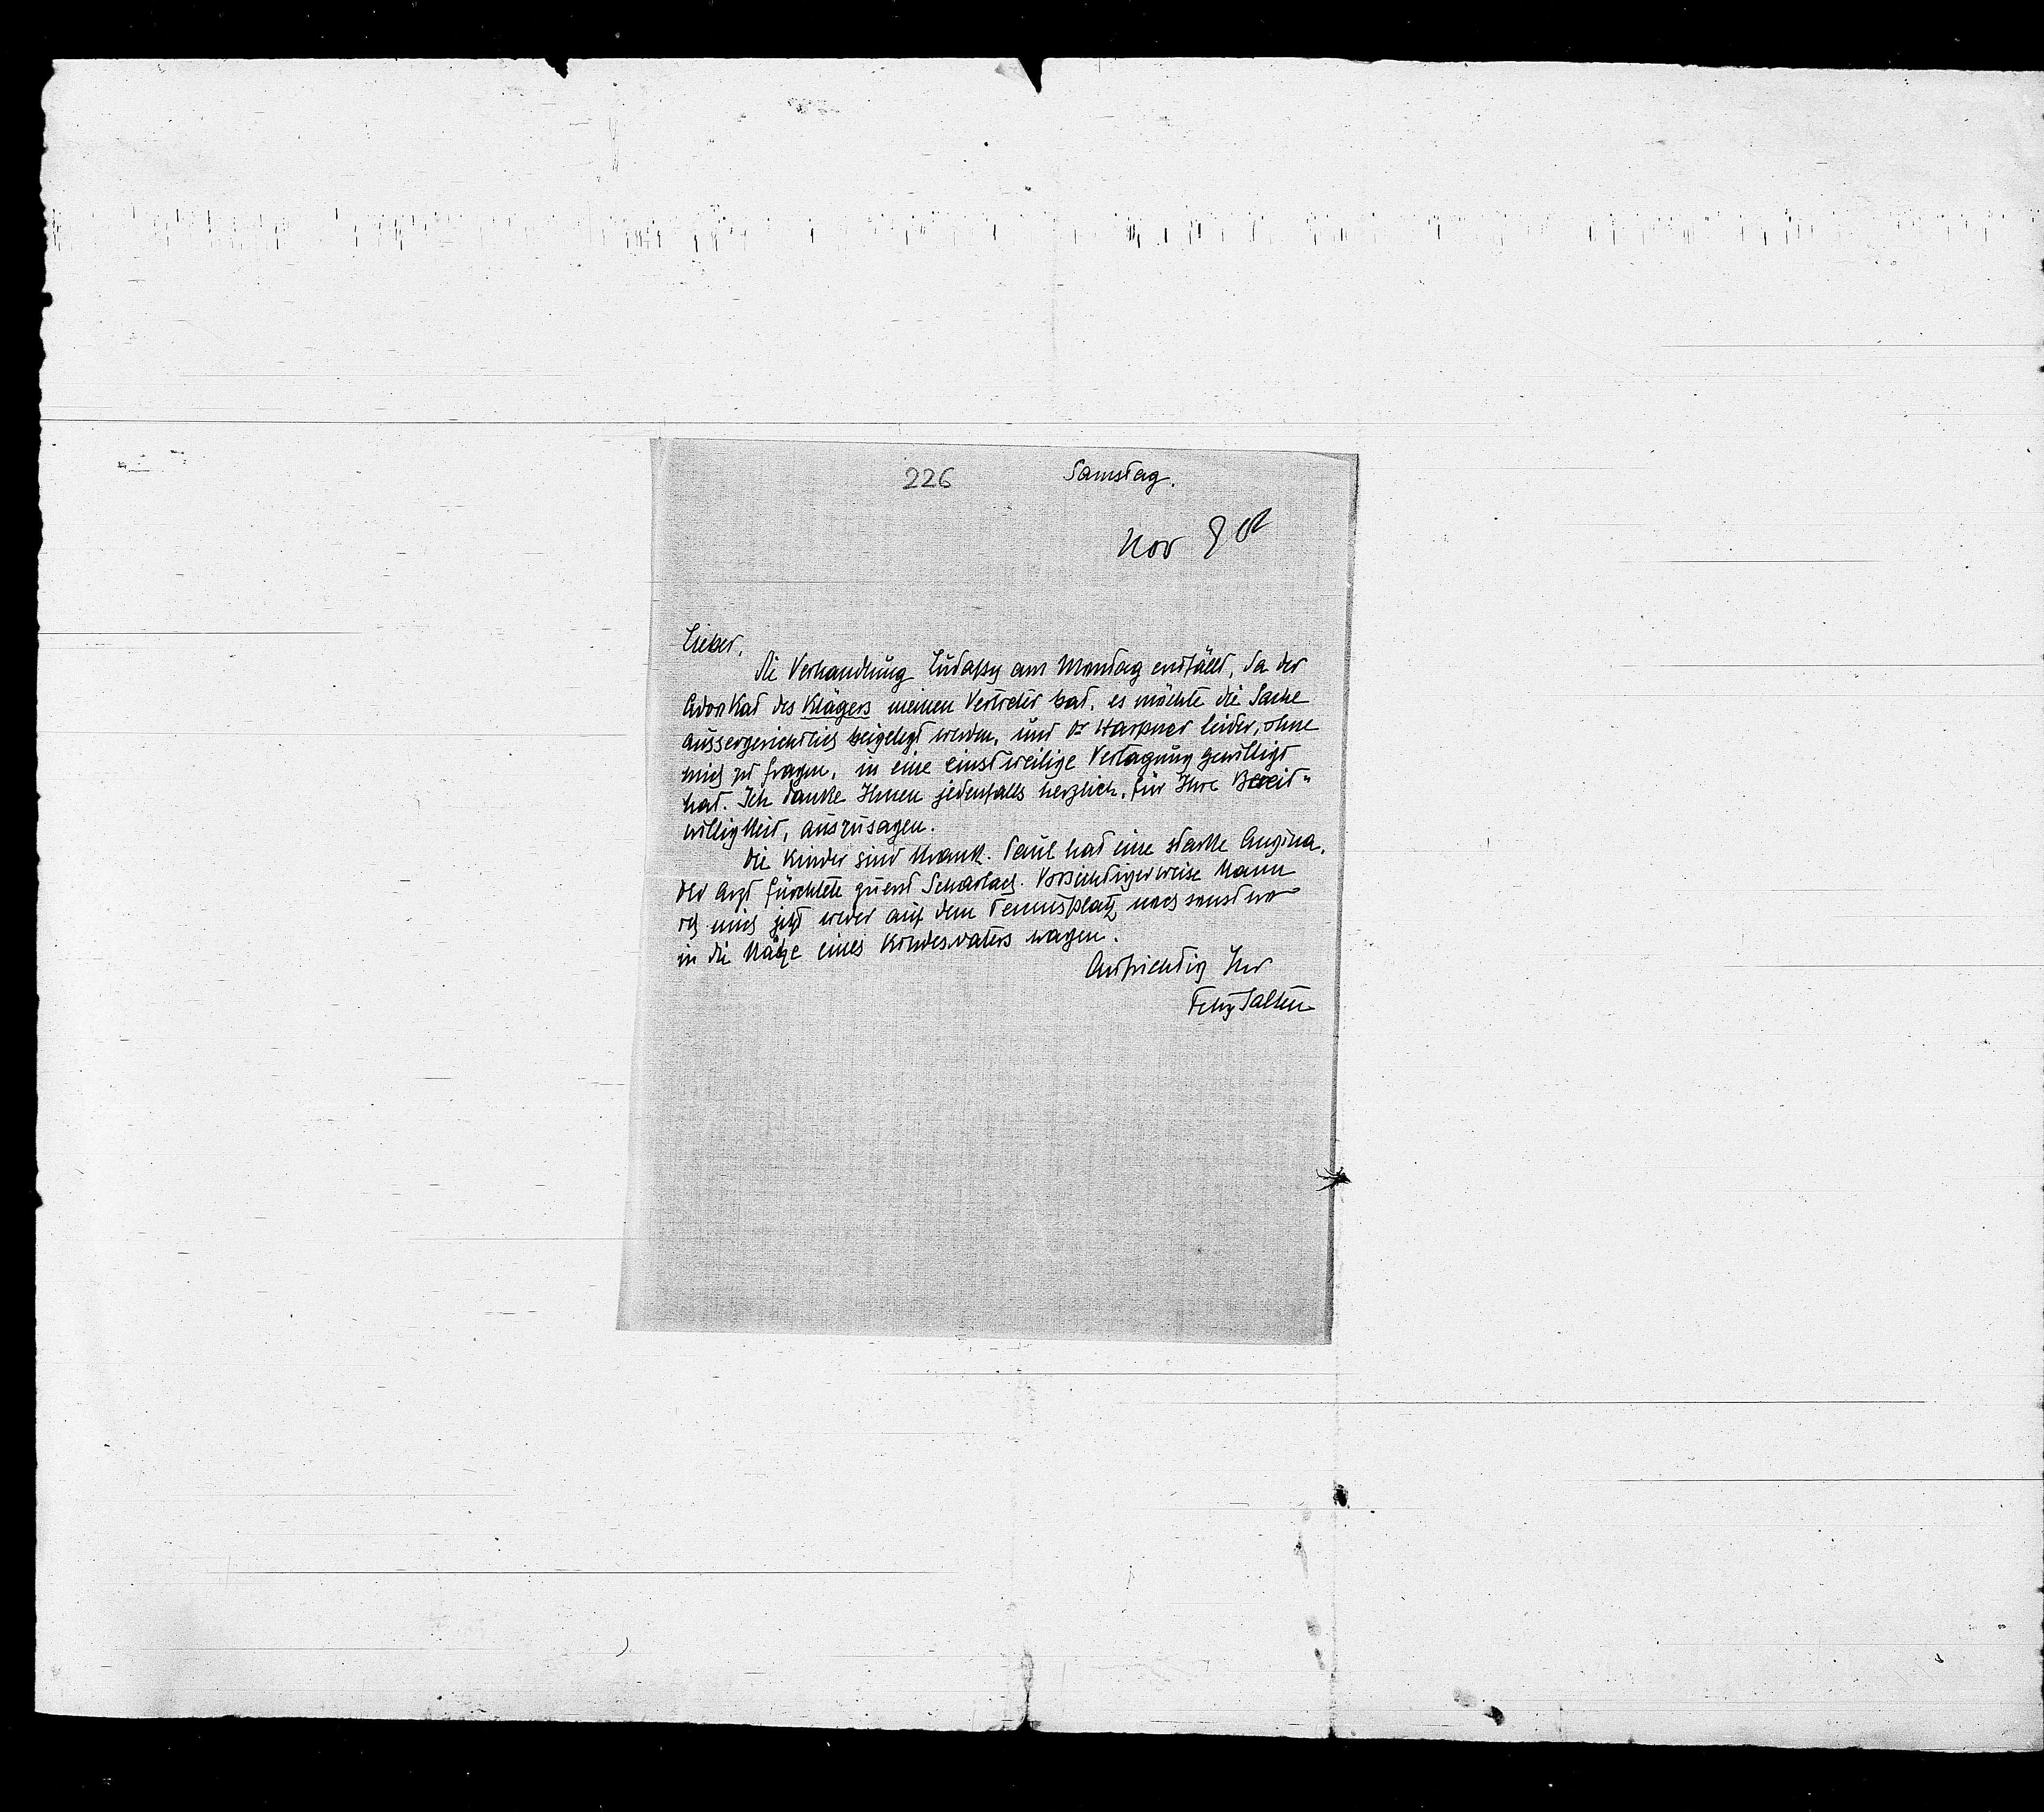 226
Samstag.
Nov 908
Lieber,
die Verhandlung Ludaßy am Montag entfällt, da der
Advokat des Klägers meinen Vertreter bat, es möchte die Sache
aussergerichtlich beigelegt werden, und Dr Harpner leider, ohne
mich zu fragen, in eine einstweilige Vertagung gewilligt
hat. Ich danke Ihnen jedenfalls herzlich, für Ihre Bereit„
willigkeit, auszusagen.
Die Kinder sind krank. Paul hat eine starke Angina.
Der Arzt fürchtete zuerst Scharlach. Vorsichtigerweise kann
ich mich jetzt weder auf dem Tennisplatz noch sonst wo
in die Nähe eines Kindesvaters wagen.
Aufrichtig Ihr
Felix Salten